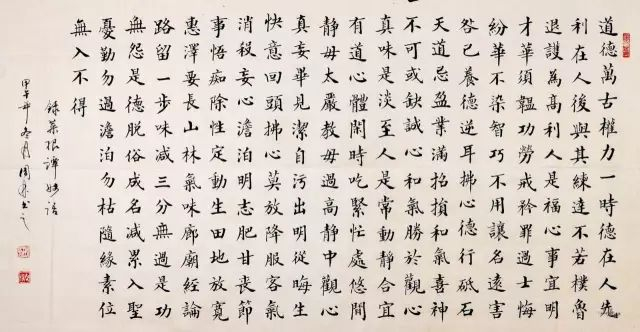 道德萬古權力一時德在人先
利在人後與其練達不若樸魯
退護為高利人是福心事宜明
才華須韞功勞戒矜罪過士悔
紛華不染智巧不用讓名遠害
咎己養德逆耳拂心德行砥石
天道忌盈業滿招損和氣喜神
不可或缺誠心和氣勝於觀心
真味是淡至人是常動靜合宜
有道心體閒時吃緊忙處悠閒
靜毋太嚴教毋過高靜中觀心
真妄畢見潔自污出明從晦生
快意回頭拂心莫放降服客氣
消殺妄心澹泊明志肥甘喪節
事悟痴除性定動生田地放寬
惠澤要長山林氣味廊廟經論
路留一步味減三分無過是功
無怨是德脫俗成名減累入聖
憂勤勿過澹泊勿枯隨緣素位
無入不得
錄菜根譚妙語
甲午年冬月周書之